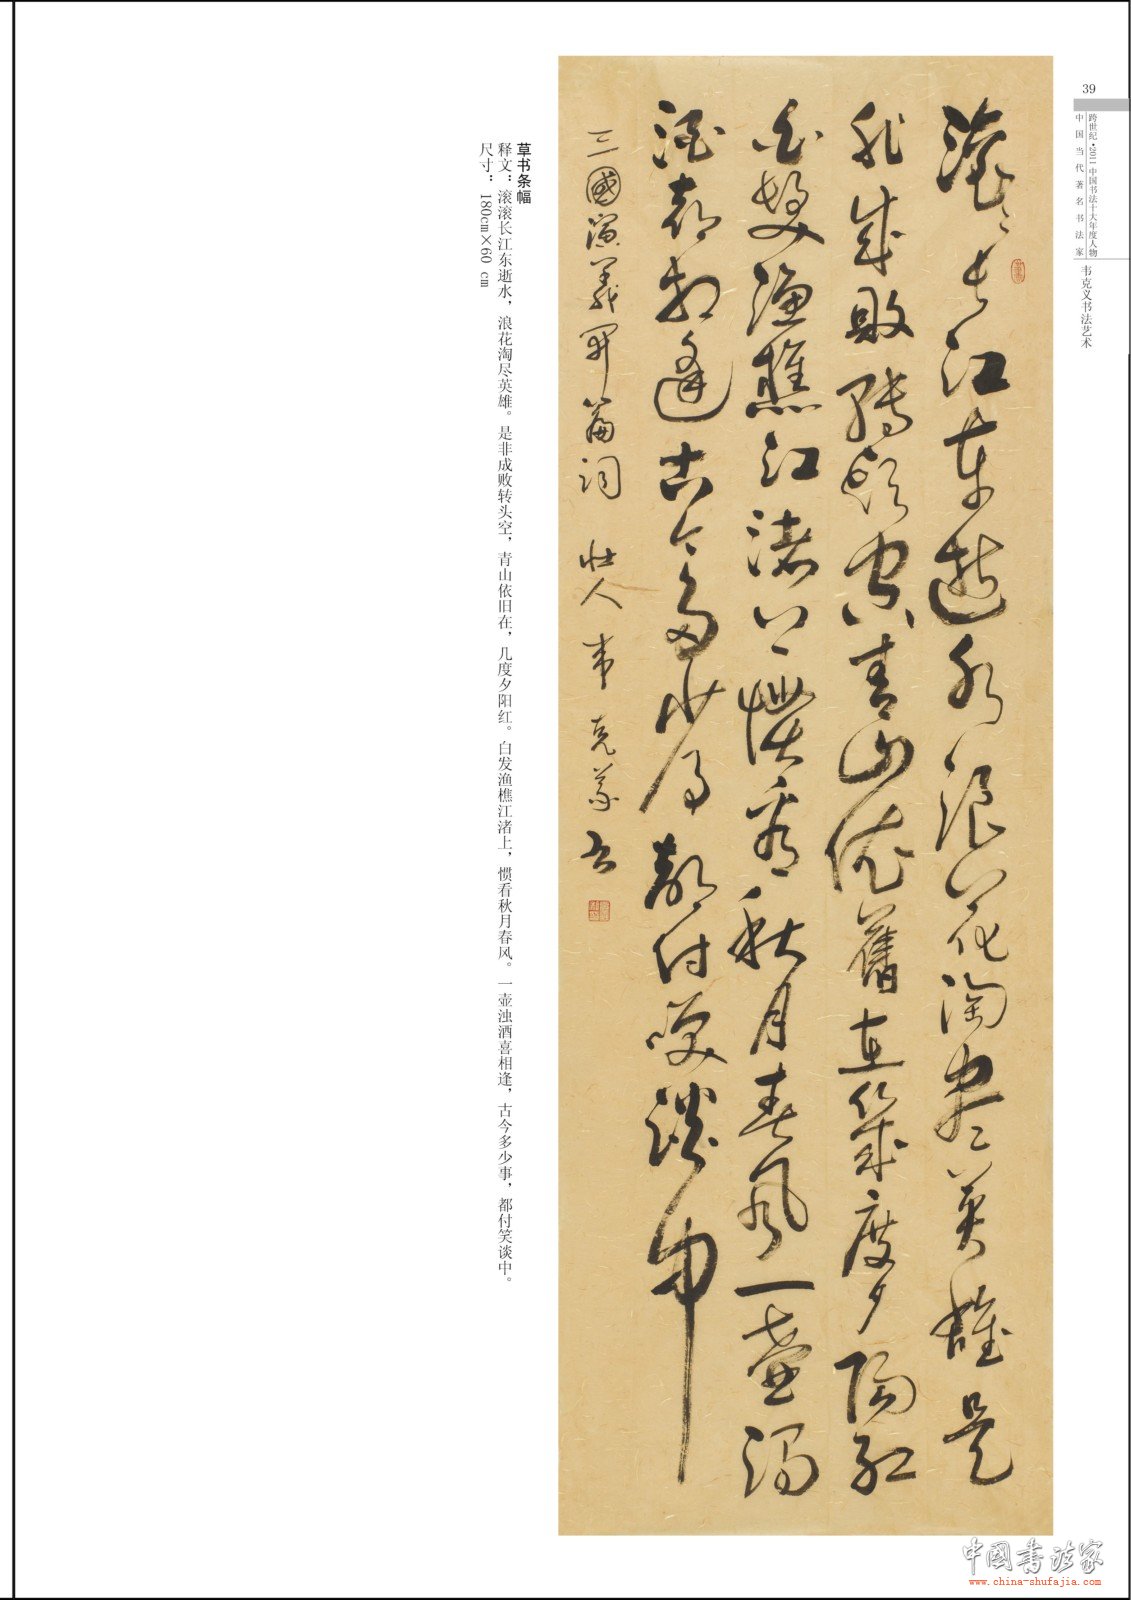 39
跨世纪·2011中国书法十大年度人物
中国当代著名书法家
韦克义书法艺术
滚滚長江東逝水浪花淘盡英雄是
非成敗轉頭空青山依舊在幾度夕陽紅
白髮漁樵江渚上慣看秋月春風一壺濁
酒喜相逢古今多少事都付笑談中
三國演義開篇詞 壯人韋克義書
草书条幅
释文：滚滚长江东逝水，浪花淘尽英雄。是非成败转头空，青山依旧在，几度夕阳红。白发渔樵江渚上，惯看秋月春风。一壶浊酒喜相逢，古今多少事，都付笑谈中。
尺寸：180cm×60 cm
中国书法家
www.china-shufajia.com